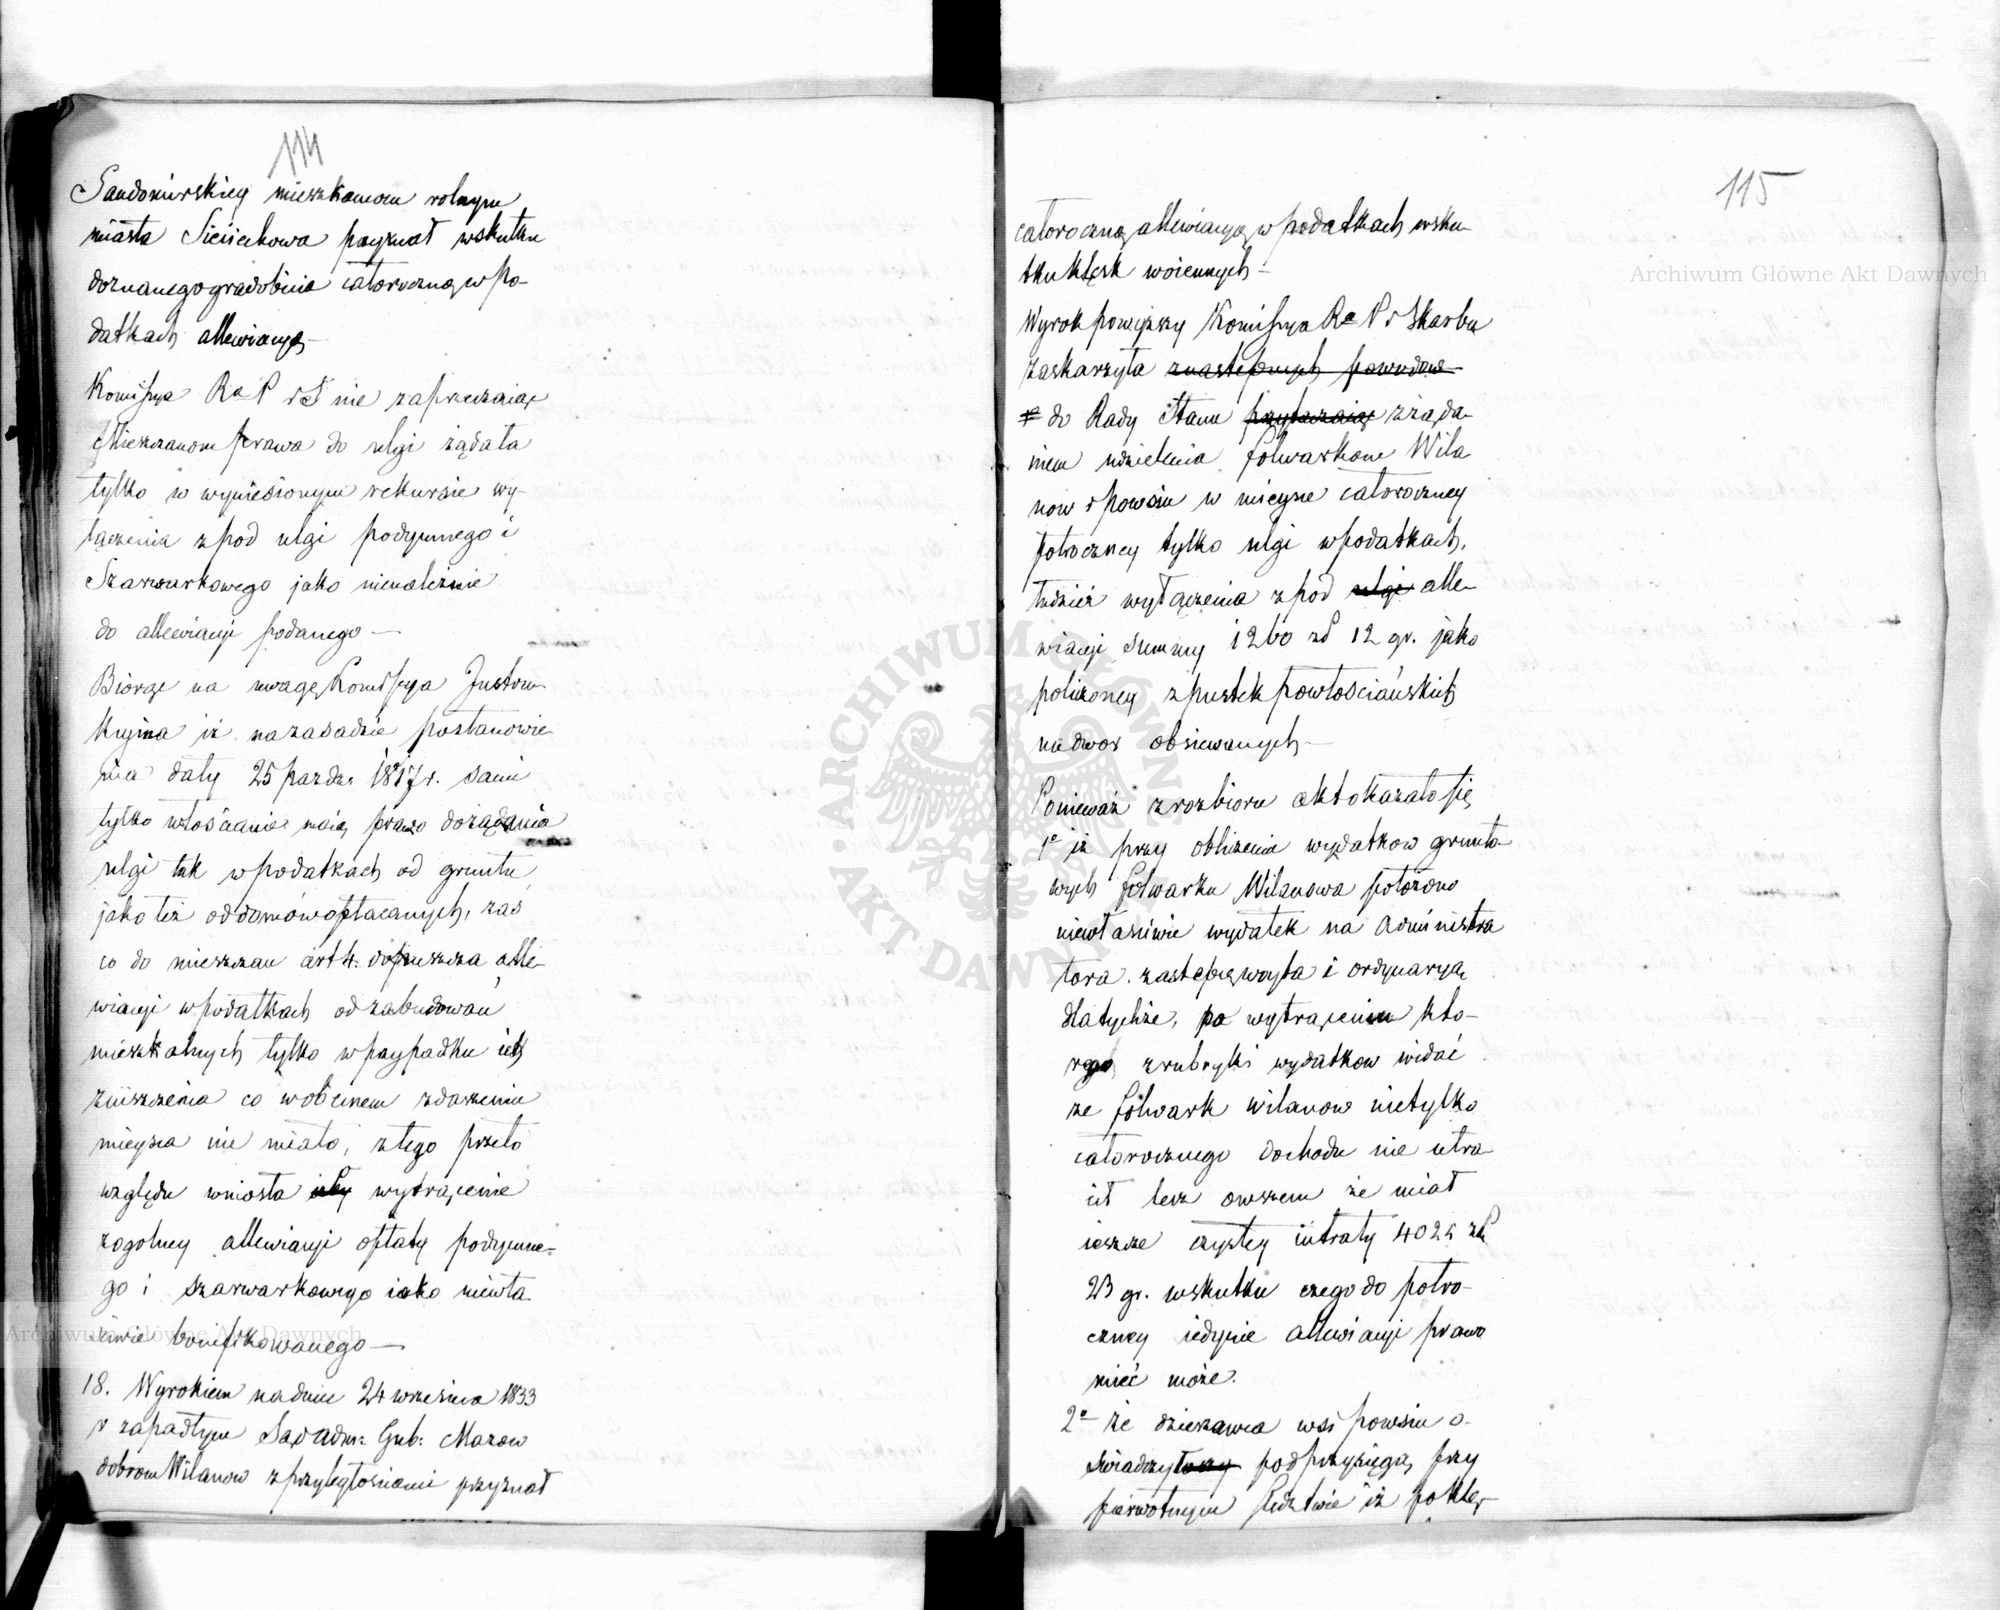 114
Sandomirskiey mieszkancom rolnym
miasta Sieciechowa przyznał wskutku
doznanego gradobicia całoroczną w po-
datkach allewiacyą –
Kommissya R. i P. i S nie zaprzeczaiąc
Mieszczanom prawa do ulgi żądała
tylko w wyniesionym rekursie wy-
łączenia z pod ulgi podymnego i
Szarwarkowego jako nienależnie
do allewiacyi podanego –
Biorąc na uwagę Kommissya Instru-
kcyjna iż na zasadzie postanowie-
nia daty 25 paźdz. 1817 r. sami
tylko włościanie maią prawo do żądania
ulgi tak w podatkach od gruntu
jako też od domów opłacanych, zaś
co do mieszczan art 4. dopuszcza alle-
wiacyi w podatkach od zabudowań
mieszkalnych tylko w przypadku ich
zniszczenia co w obecnem zdarzeniu
mieysca nie miało, z tego przeto
względu wniosła wytrącenie
z ogolney allewiacyi opłaty podymne-
go i szarwarkowego iako niewła-
ściwie bonifikowanego –
18. Wyrokiem na dniu 24 września 1833
r zapadłym Sąd adm: Gub: Mazow
dobrom Wilanow z przyległościami przyznał
115
całoroczną allewiacyą w podatkach wsku-
tku klęsk woiennych –
Wyrok powyższy Kommissya R. i P. i Skarbu
zaskarzyła z następnych powodow
do Rady Stanu przytaczaiąc z żąda-
niem udzielenia folwarkom Wila
now i powsin w mieysce całoroczney
połroczney tylko ulgi w podatkach,
tudzież wyłączenia z pod ulgi alle-
wiacyi summy 1260 zł 12 gr. jako
policzoney z pustek powłościańskich
na dwor obsiewanych –
Ponieważ z rozbioru akt okazało się
1° iż przy obliczeniu wydatkow grunto-
wych folwarku Wilanowa położono
niewłaściwie wydatek na Administra
tora. zastępcę woyta i ordynaryą
dla tychże, po wytrąceniu kto-
rego z rubryki wydatkow widać
ze folwark wilanow nietylko
całorocznego dochodu nie utra-
cił lecz owszem że miał
ieszcze czystey intraty 4025 zł
23 gr. wskutku czego do połro-
czney iedynie allewiacyi prawo
mieć może.
2° że dzierzawca wsi powsin o-
świadczył pod przysięgą przy
pierwotnym śledztwie iż po klę-